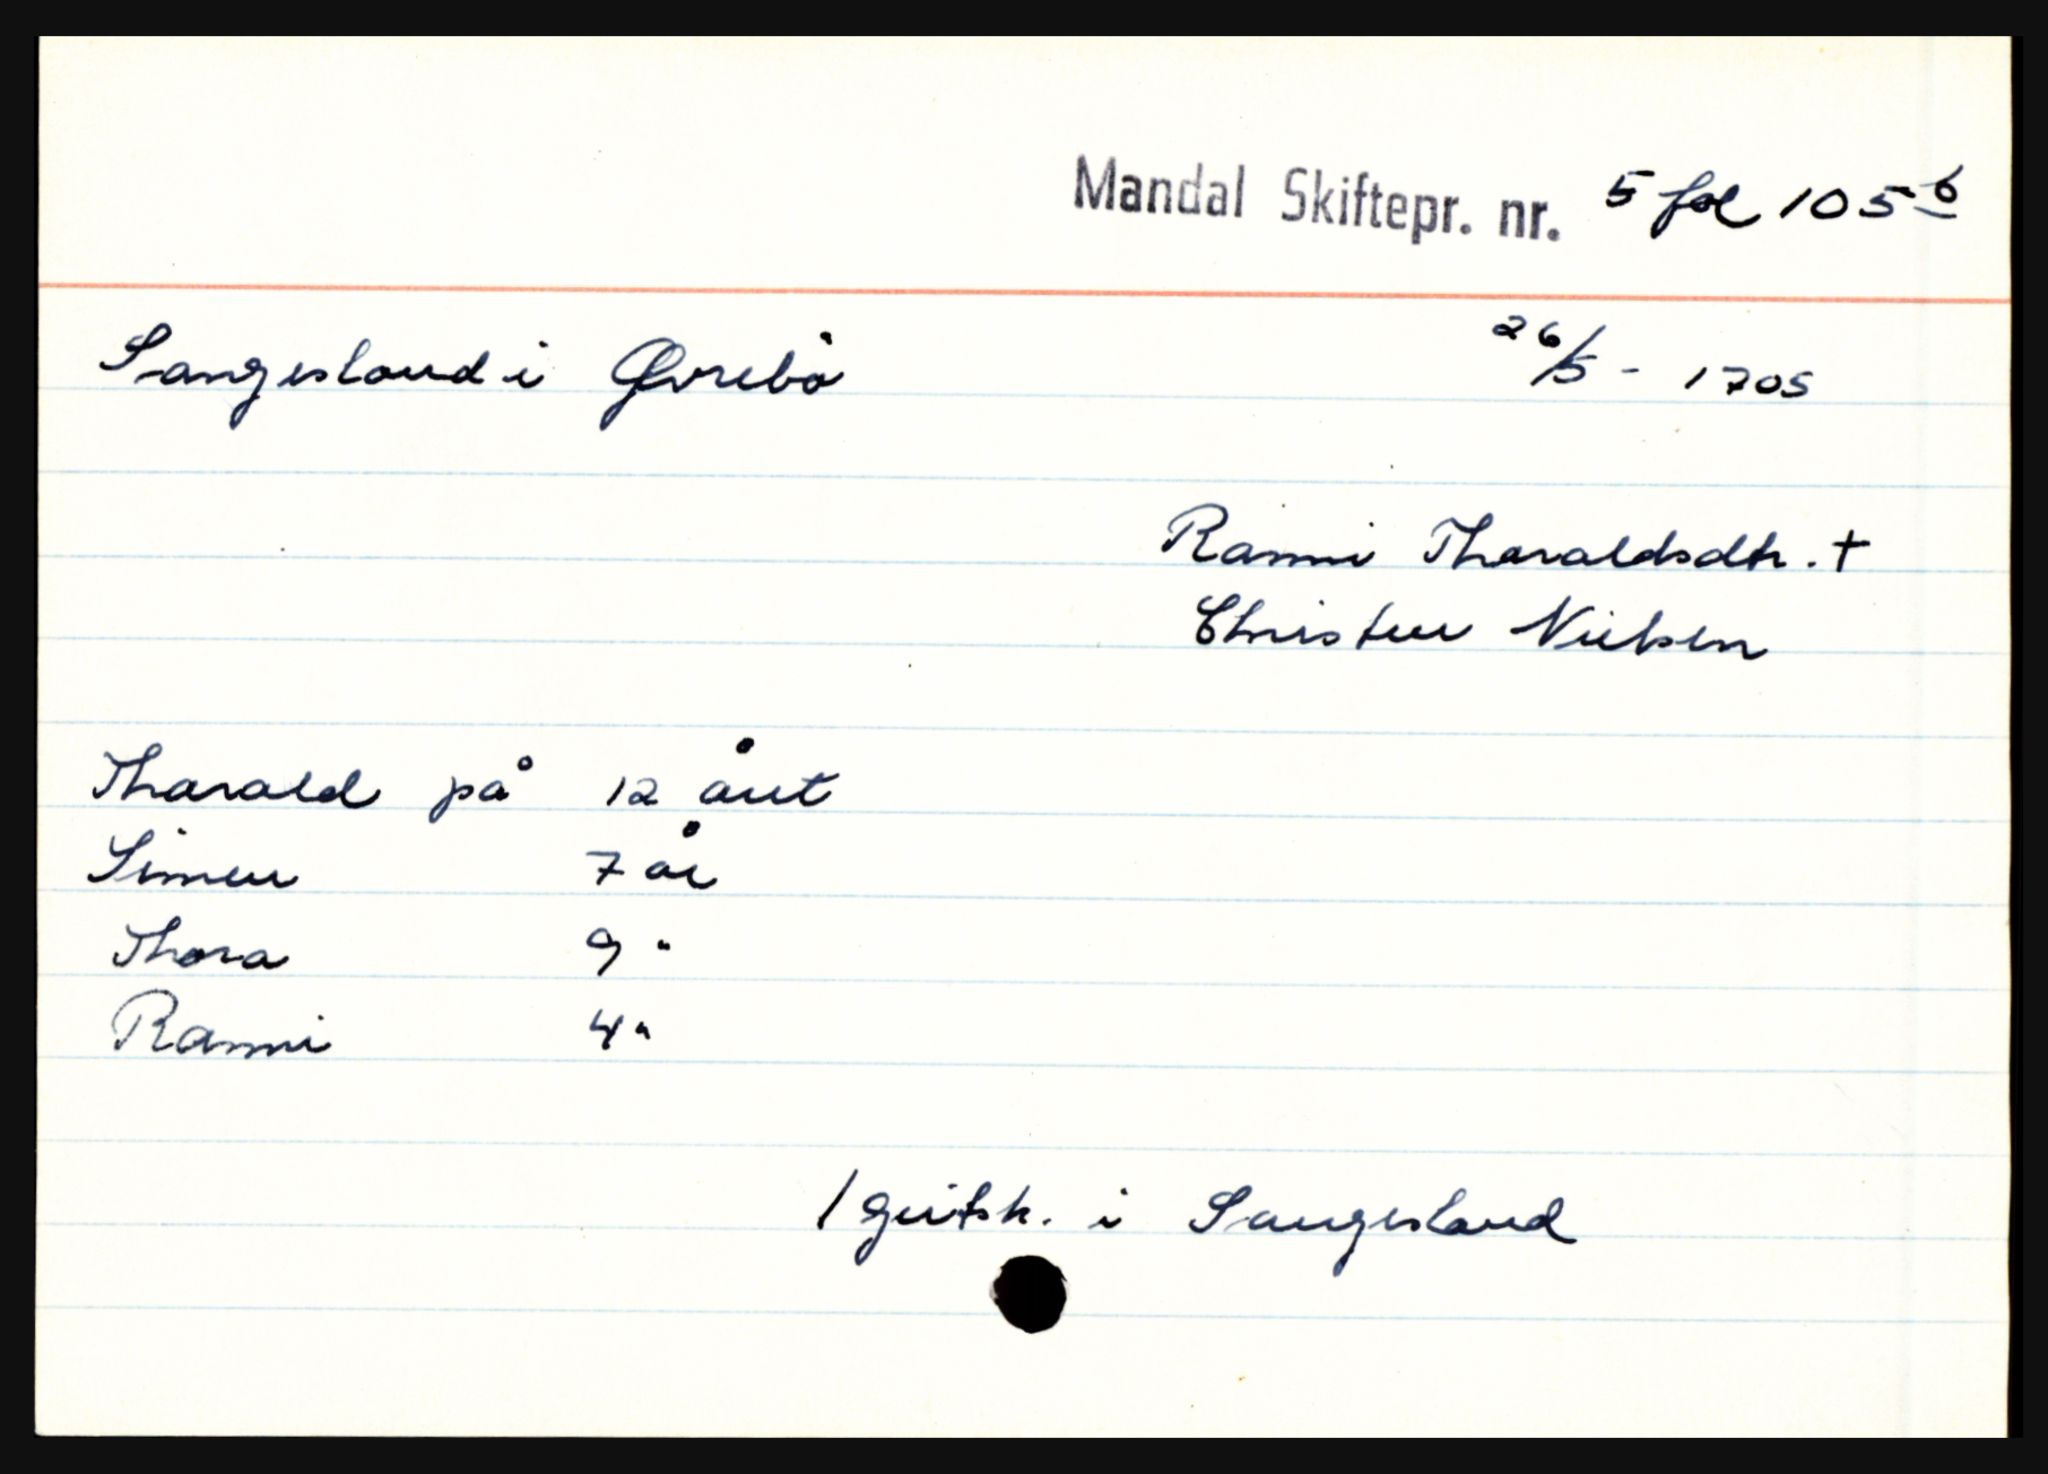 Mandal Skiftepr. nr. 5 fol 105 b
Sangesland i Øvrebö
26/5 - 1705
Ranni Tharaldsdtr. +
Christen Nielsen
Tharald på 12 året
Simen 7 år
Thora 9 "
Ranni 4 "
1 geitsk. i Sangesland